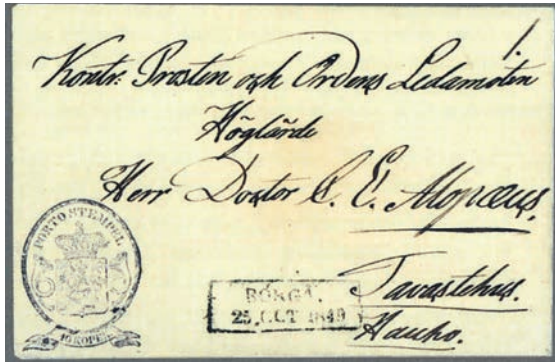 1.
Kontr: Prosten och Ordens Ledamoten
Höglärde
Herr Doktor C. E. Alopæus,
Tavastehus.
Hauho.
PORTO STEMPEL
10 KOPEK
BORGÅ.
25.OCT 1849